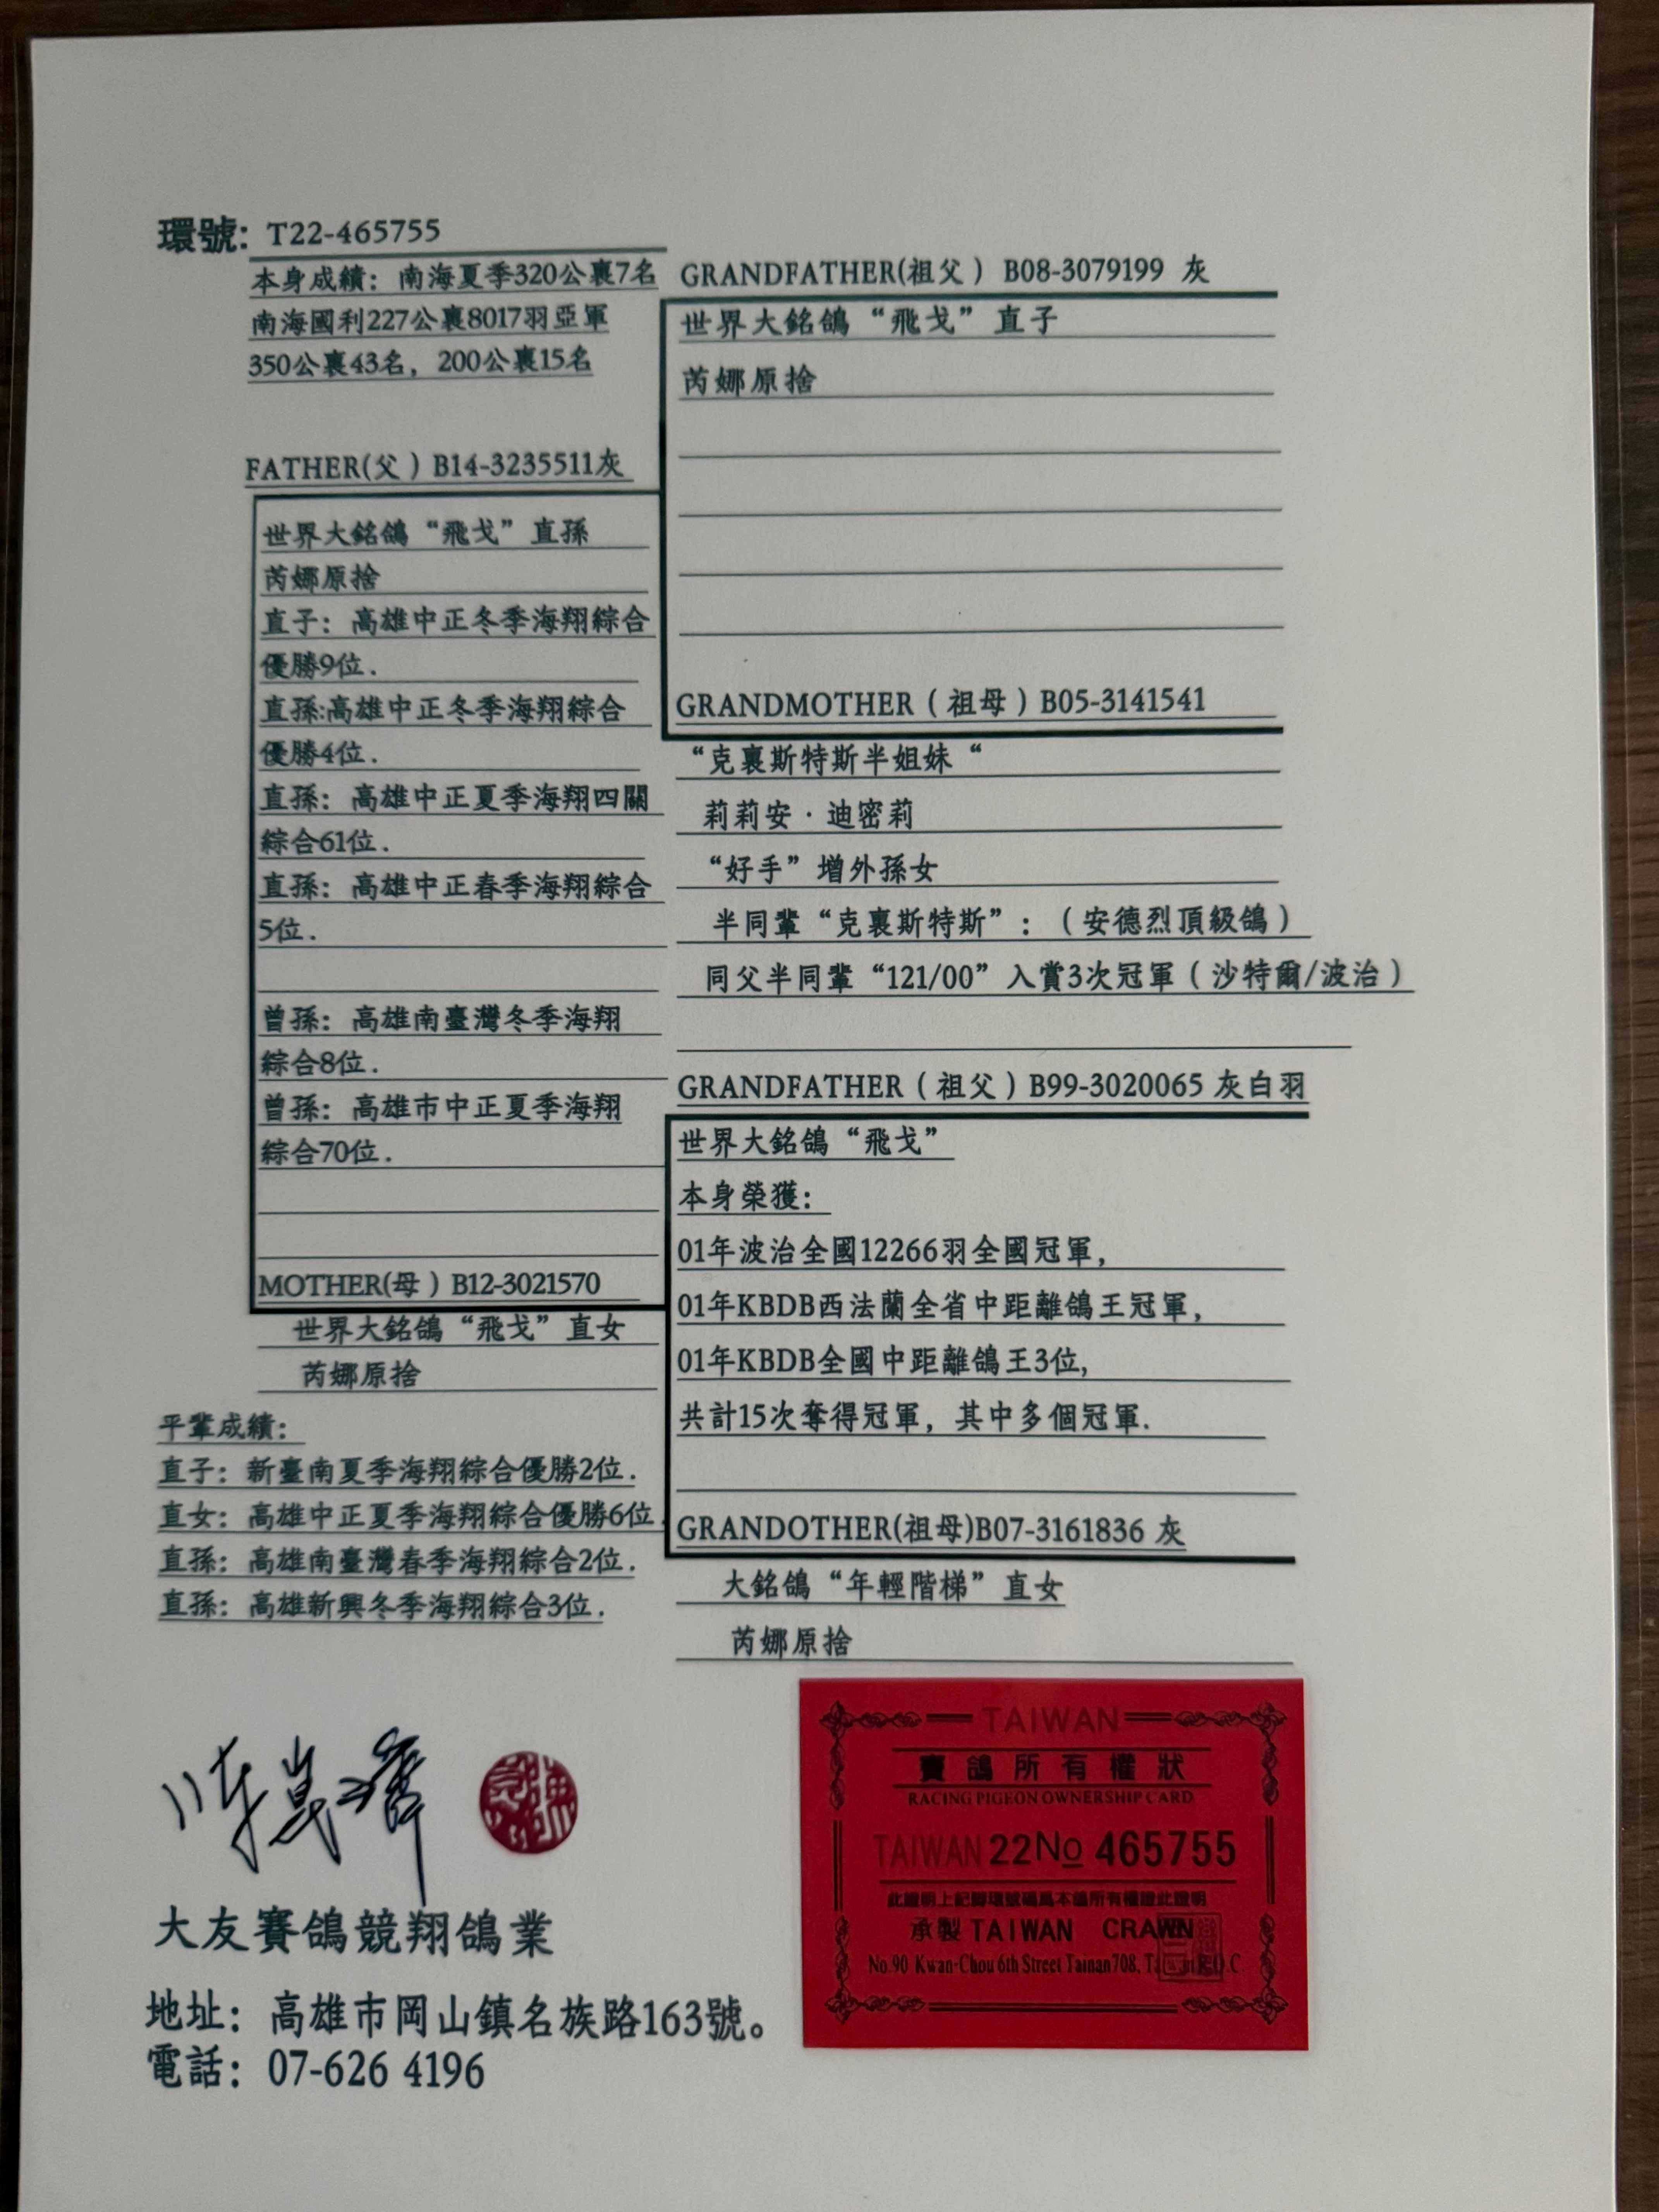 環號: T22-465755
本身成績：南海夏季320公裏7名
南海國利227公裏8017羽亞軍
350公裏43名，200公裏15名
FATHER(父）B14-3235511灰
世界大銘鴿“飛戈”直孫
芮娜原捨
直子：高雄中正冬季海翔綜合
優勝9位.
直孫:高雄中正冬季海翔綜合
優勝4位.
直孫：高雄中正夏季海翔四關
綜合61位.
直孫：高雄中正春季海翔綜合
5位.
曾孫：高雄南臺灣冬季海翔
綜合8位.
曾孫：高雄市中正夏季海翔
綜合70位.
MOTHER(母）B12-3021570
世界大銘鴿“飛戈”直女
芮娜原捨
平輩成績：
直子：新臺南夏季海翔綜合優勝2位.
直女：高雄中正夏季海翔綜合優勝6位.
直孫：高雄南臺灣春季海翔綜合2位.
直孫：高雄新興冬季海翔綜合3位.
GRANDFATHER(祖父）B08-3079199 灰
世界大銘鴿“飛戈”直子
芮娜原捨
GRANDMOTHER（祖母）B05-3141541
“克裏斯特斯半姐妹“
莉莉安·迪密莉
“好手”增外孫女
半同輩“克裏斯特斯”：（安德烈頂級鴿）
同父半同輩“121/00”入賞3次冠軍（沙特爾/波治）
GRANDFATHER（祖父）B99-3020065 灰白羽
世界大銘鴿“飛戈”
本身榮獲：
01年波治全國12266羽全國冠軍,
01年KBDB西法蘭全省中距離鴿王冠軍,
01年KBDB全國中距離鴿王3位,
共計15次奪得冠軍，其中多個冠軍.
GRANDOTHER(祖母)B07-3161836 灰
大銘鴿“年輕階梯”直女
芮娜原捨
大友賽鴿競翔鴿業
地址：高雄市岡山鎮名族路163號。
電話：07-626 4196
TAIWAN
賽鴿所有權狀
RACING PIGEON OWNERSHIP CARD
TAIWAN 22No 465755
此證明上記腳環號碼為本鴿所有權證此證明
承製 TAIWAN CRAWN
No.90 Kwan-Chou 6th Street Tainan 708, Taiwan R.O.C.